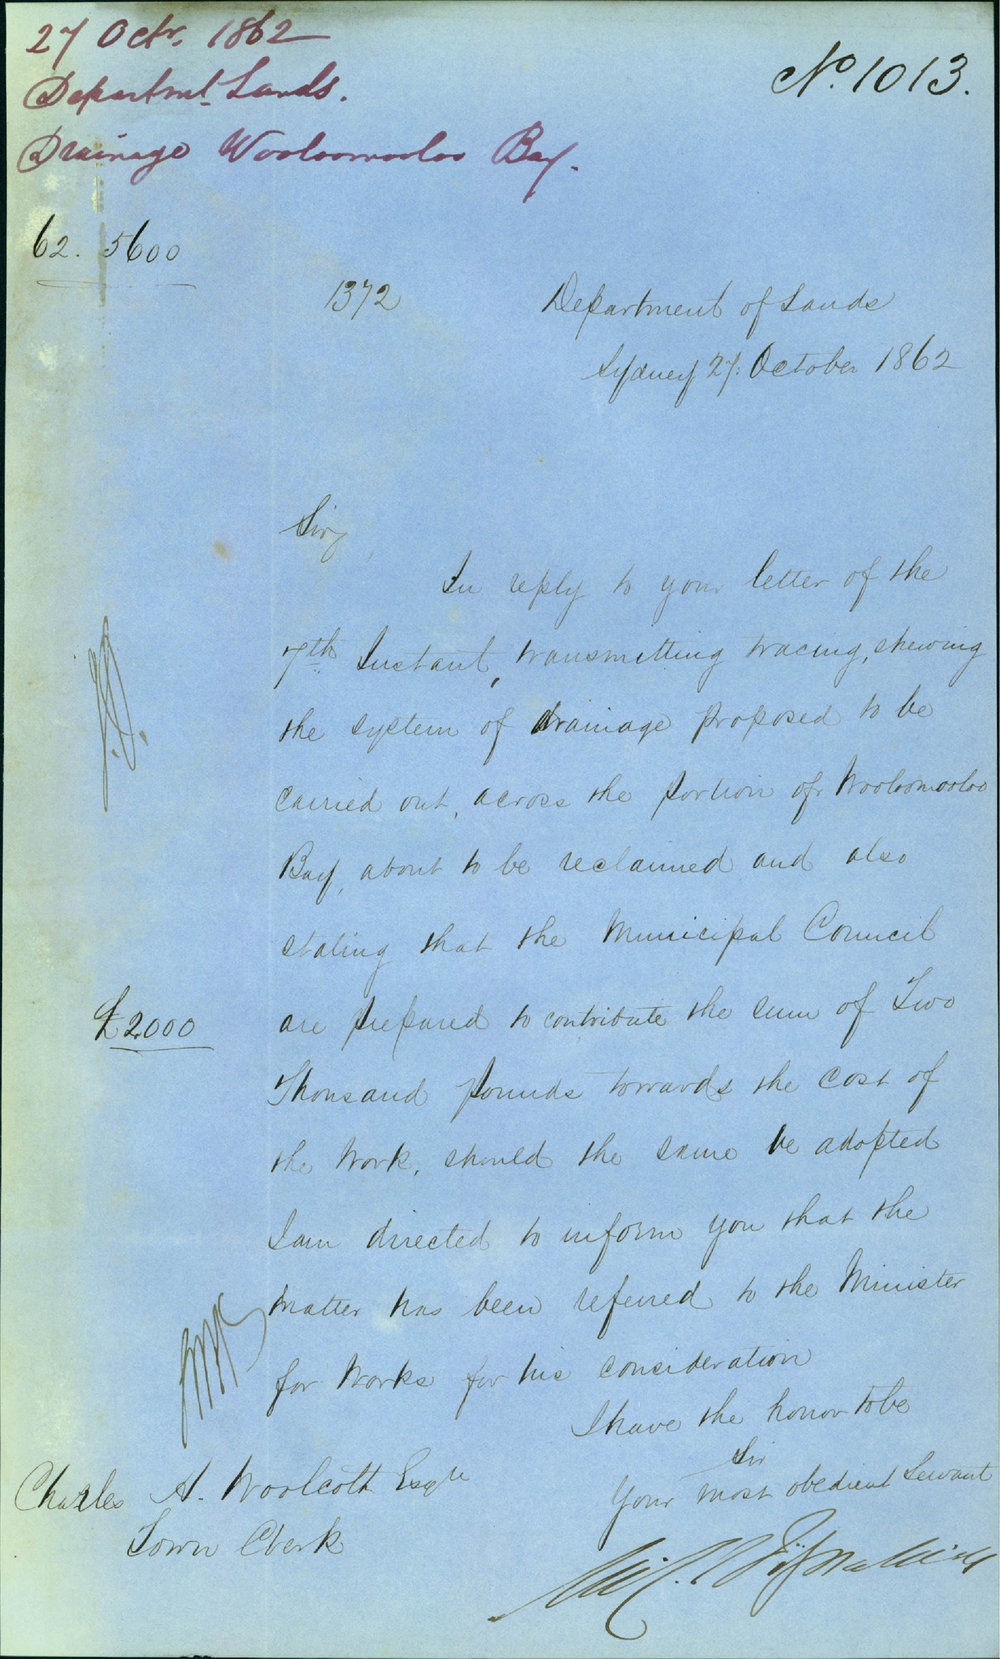 27 Octr. 1862
No. 1013.
Departmt. Lands.
Drainage Wooloomooloo Bay.
62. 5600
1372
Department of Lands
Sydney 27. October 1862
Sir,
In reply to your letter of the
7th Instant, transmitting tracing, shewing
the system of drainage proposed to be
carried out, across the portion of Wooloomooloo
Bay, about to be reclaimed and also
stating that the Municipal Council
£2000
are prepared to contribute the sum of Two
Thousand pounds towards the cost of
the work, should the same be adopted
I am directed to inform you that the
matter has been referred to the Minister
for Works for his consideration
I have the honor to be
Sir
Your most obedient Servant
Charles H. Woolcott Esqre
Town Clerk